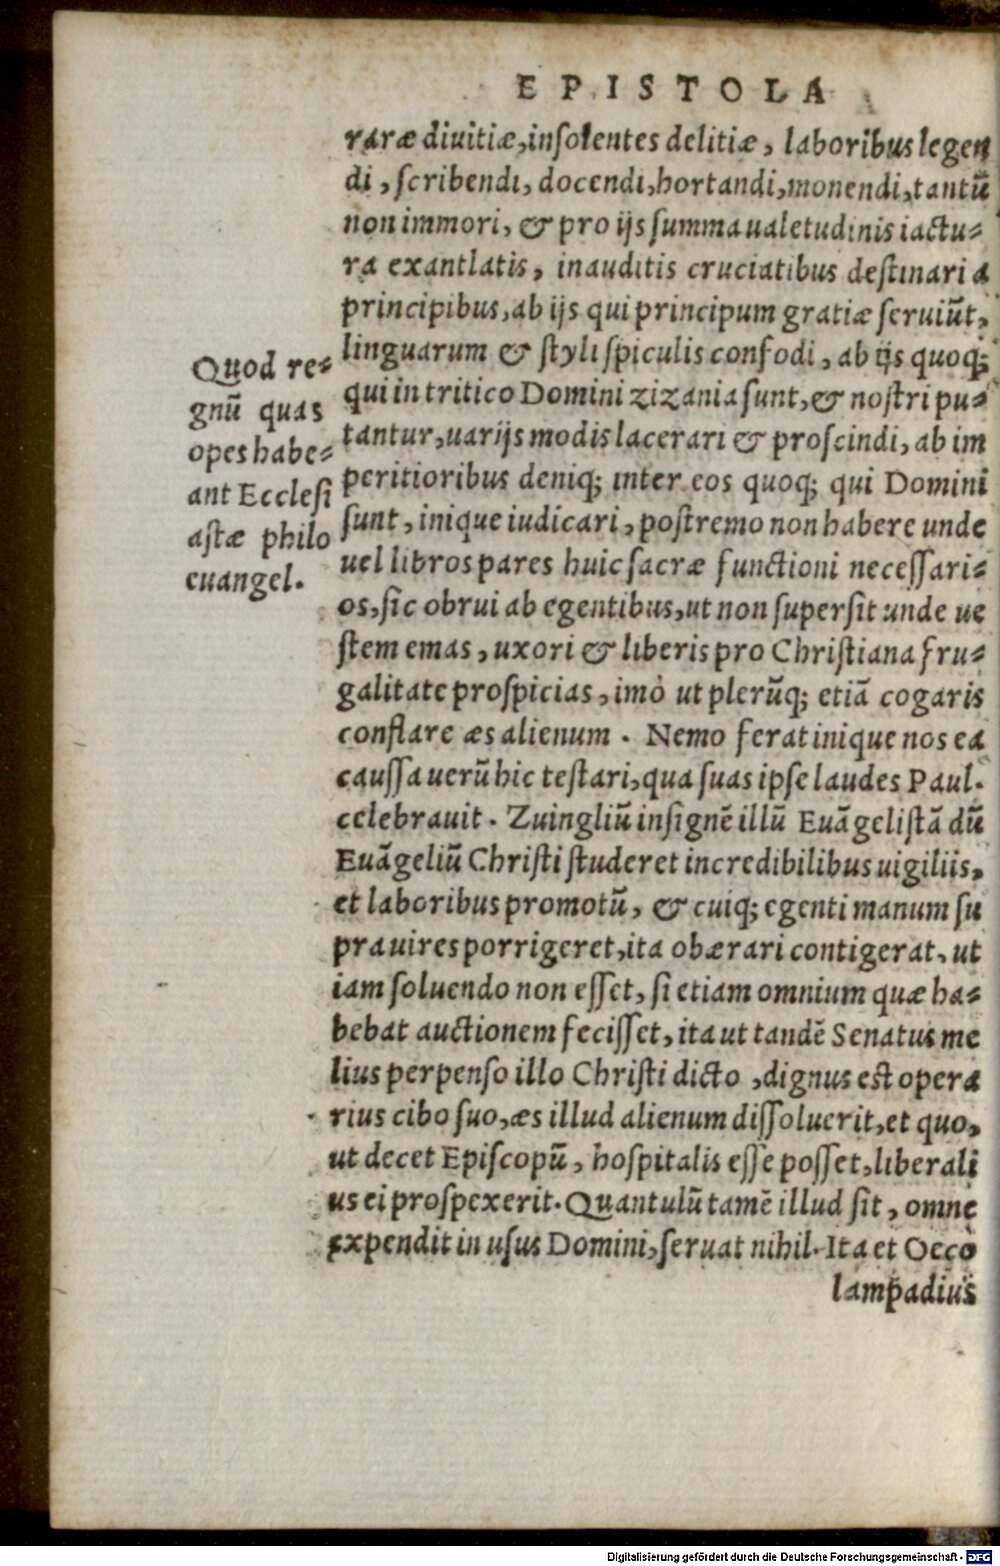 EPISTOLA
raræ diuitiæ, insolentes delitiæ, laboribus legen
di, scribendi, docendi, hortandi, monendi, tantū
non immori, & pro ijs summa ualetudinis iactu-
ra exantlatis, inauditis cruciatibus destinari a
principibus, ab ijs qui principum gratiæ seruiūt,
linguarum & styli spiculis confodi, ab ijs quoq;
qui in tritico Domini zizania sunt, & nostri pu-
tantur, uarijs modis lacerari & proscindi, ab im
peritioribus deniq; inter eos quoq; qui Domini
sunt, inique iudicari, postremo non habere unde
uel libros pares huic sacræ functioni necessari-
os, sic obrui ab egentibus, ut non supersit unde ue
stem emas, uxori & liberis pro Christiana fru-
galitate prospicias, imò ut plerūq; etiā cogaris
conflare æs alienum. Nemo ferat inique nos ea
caussa uerū hic testari, qua suas ipse laudes Paul.
celebrauit. Zuingliū insignē illū Euāgelistā dū
Euāgeliū Christi studeret incredibilibus uigiliis,
et laboribus promotū, & cuiq; egenti manum su
pra uires porrigeret, ita obærari contigerat, ut
iam soluendo non esset, si etiam omnium quæ ha-
bebat auctionem fecisset, ita ut tandē Senatus me
lius perpenso illo Christi dicto, dignus est opera
rius cibo suo, æs illud alienum dissoluerit, et quo,
ut decet Episcopū, hospitalis esse posset, liberali
us ei prospexerit. Quantulū tamē illud sit, omne
expendit in usus Domini, seruat nihil. Ita et Oeco
lampadius
Quod re-
gnū quas
opes habe-
ant Ecclesi
astæ philo
euangel.
Digitalisierung gefördert durch die Deutsche Forschungsgemeinschaft - DFG